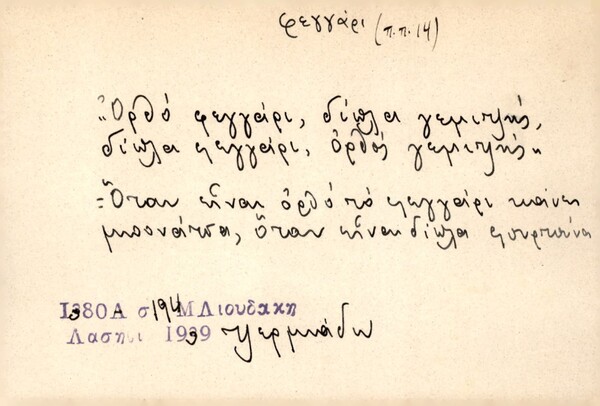 φεγγάρι (π.π. 14)
"Ορθό φεγγάρι, δίπλα γεμιτζής,
δίπλα φεγγάρι, ὀρθός γεμιτζής"
=Ὅταν εἶναι ὀρθό τό φεγγάρι κάνει
μπονάτσα, ὅταν εἶναι δίπλα φουρτούνα
1380Α σ 194 Μ Λιουδάκη
Λασηθι 1939 Ψερμιάδω